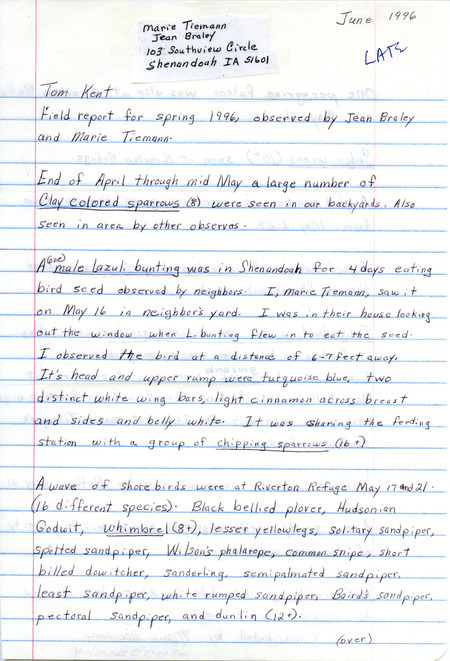 June 1996
Marie Tiemann
Jean Braley
103 Southview Circle
Shenandoah IA 51601
LATE
Tom Kent
Field report for spring 1996, observed by Jean Braley
and Marie Tiemann.
End of April through mid May a large number of
Clay colored sparrows (8) were seen in our backyards. Also
seen in area by other observes.
A (one) male lazuli bunting was in Shenandoah for 4 days eating
bird seed observed by neighbors. I, Marie Tiemann, saw it
on May 16 in neighbor's yard. I was in their house looking
out the window when L. bunting flew in to eat the seed.
I observed the bird at a distance of 6-7 feet away.
It's head and upper rump were turquoise blue, two
distinct white wing bars, light cinnamon across breast
and sides and belly white. It was sharing the feeding
station with a group of chipping sparrows (16+)
A wave of shore birds were at Riverton Refuge May 17 and 21.
(16 different species). Black bellied plover, Hudsonian
Godwit, whimbrel (8+), lesser yellowlegs, solitary sandpiper,
spotted sandpiper, Wilson's phalarope, common snipe, short
billed dowitcher, sanderling, semipalmated sandpiper,
least sandpiper, white rumped sandpiper, Baird's sandpiper,
pectoral sandpiper, and dunlin (12+).
(over)